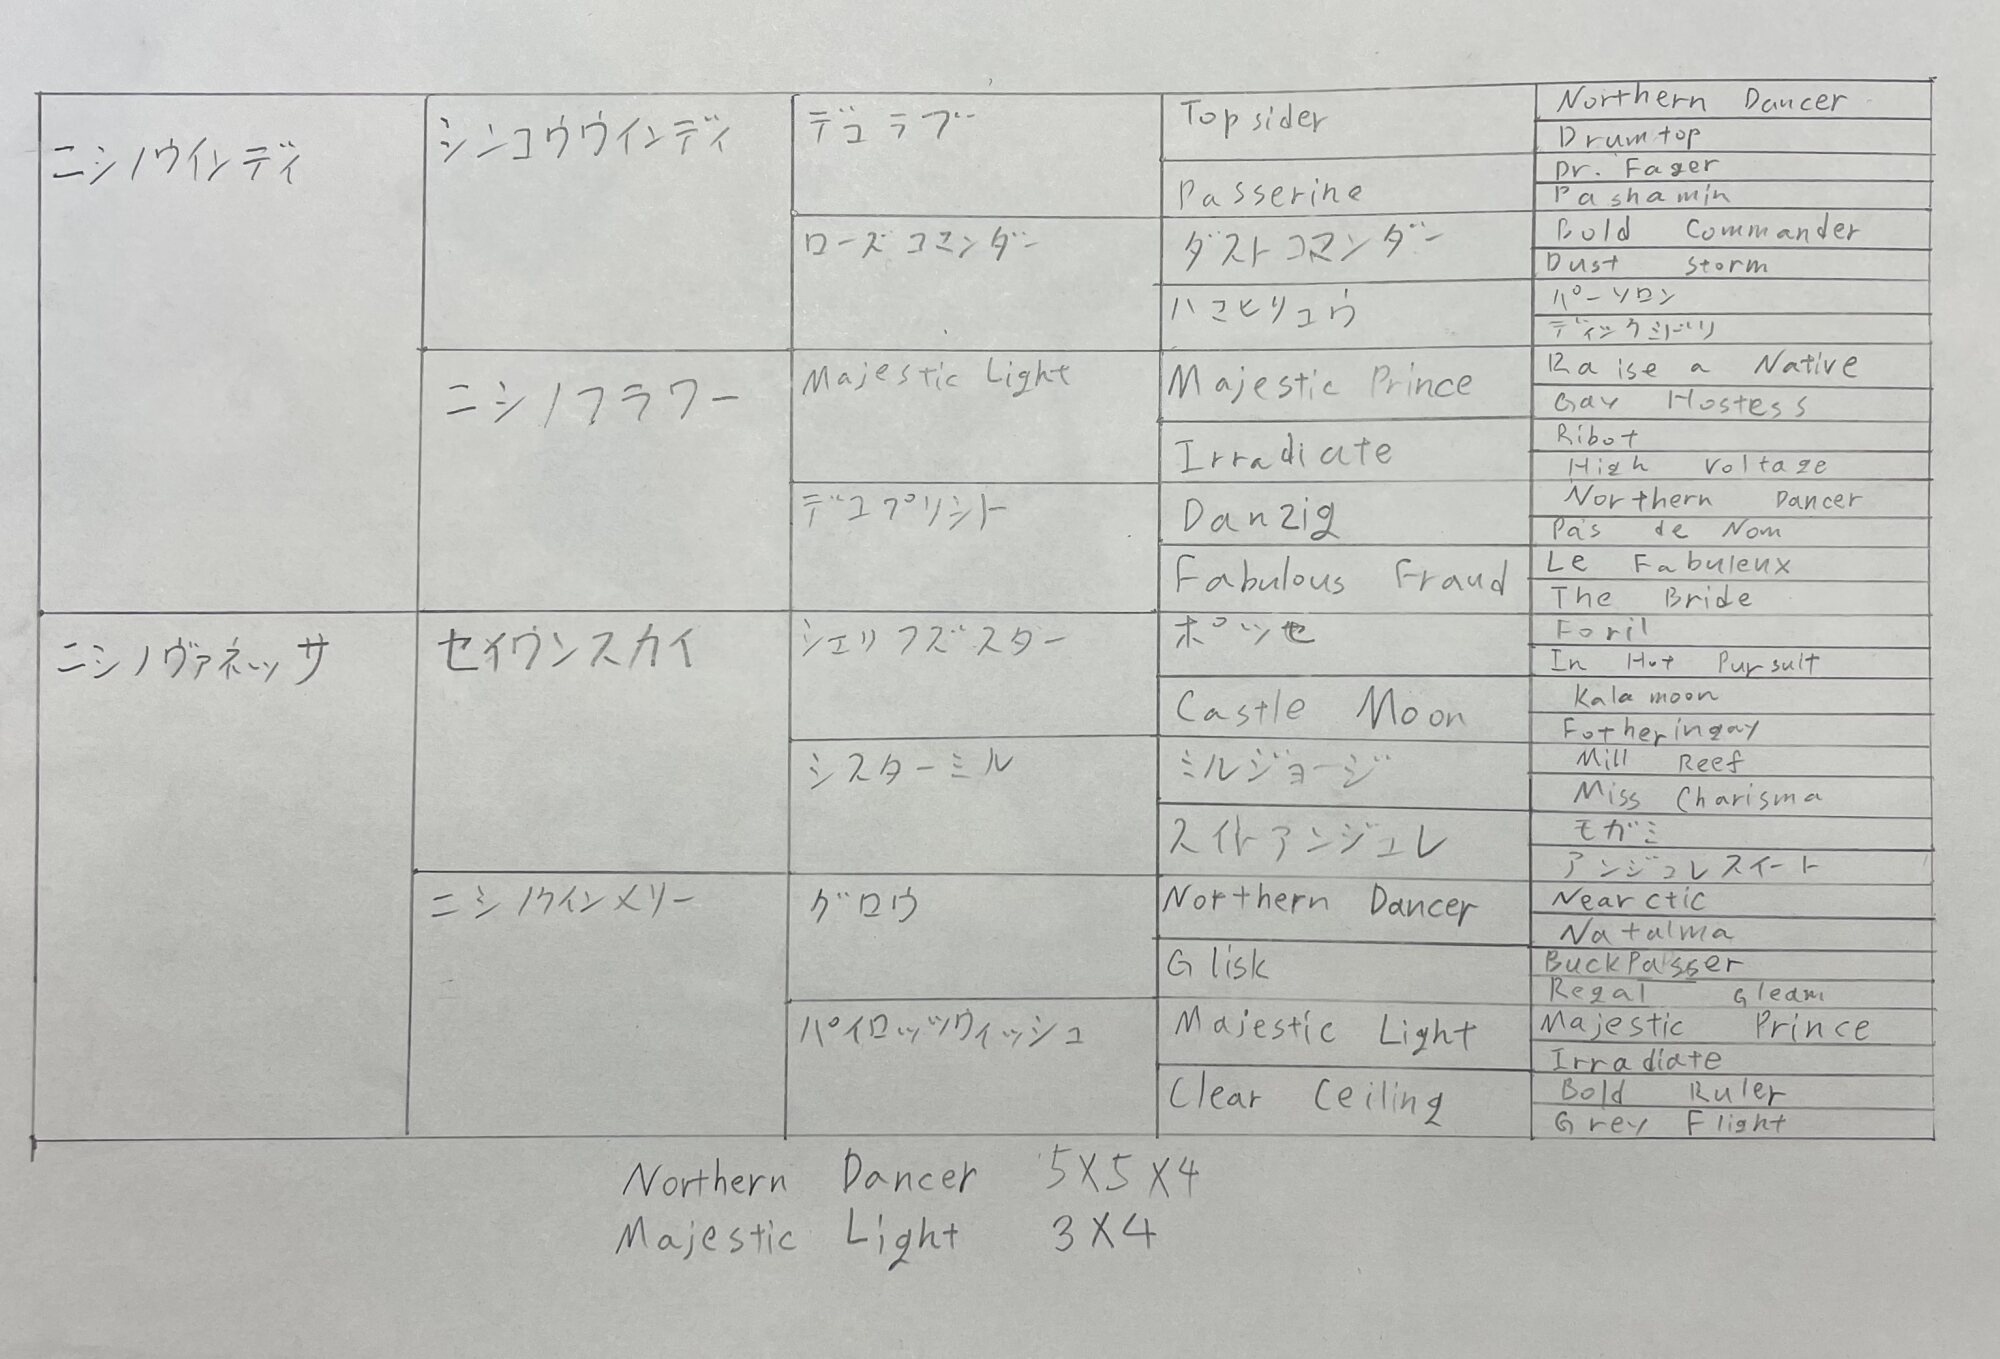 ニシノウインディ
シンコウウインディ
デュラブ
Topsider
Northern Dancer
Drumtop
Passerine
Dr. Fager
Pashamin
ローズコマンダー
ダストコマンダー
Bold Commander
Dust Storm
ハマヒリュウ
パーソロン
ディックシバリ
ニシノフラワー
Majestic Light
Majestic Prince
Raise a Native
Gay Hostess
Irradiate
Ribot
High Voltage
デュプリシト
Danzig
Northern Dancer
Pas de Nom
Fabulous Fraud
Le Fabuleux
The Bride
ニシノヴァネッサ
セイウンスカイ
シェリフズスター
ポッセ
Foril
In Hot Pursuit
Castle Moon
Kalamoon
Fotheringay
シスターミル
ミルジョージ
Mill Reef
Miss Charisma
スイトアンジュレ
モガミ
アンジュレスイート
ニシノウインメリー
グロウ
Northern Dancer
Nearctic
Natalma
Glisk
BuckPasser
Regal Gleam
パイロッツウィッシュ
Majestic Light
Majestic Prince
Irradiate
Clear Ceiling
Bold Ruler
Grey Flight
Northern Dancer 5X5X4
Majestic Light 3X4